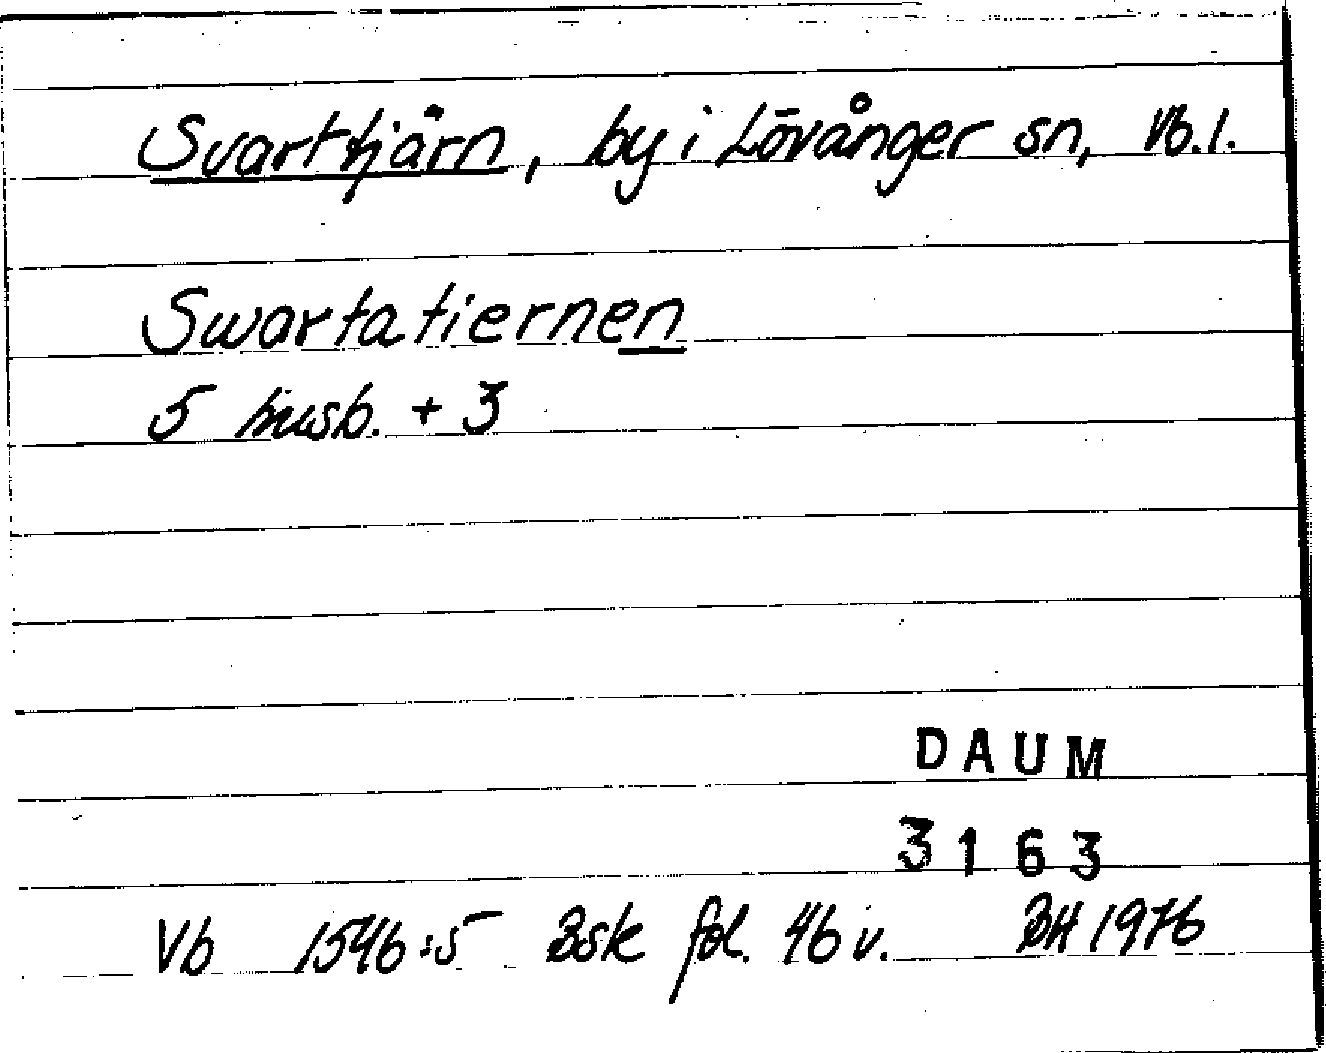 Svarttjärn, by i Lövånger sn, Vb. l.
Swartatiernen
5 husb. + 3
DAUM
3163
Vb 1546:5 Bsk fol. 46 v. BH 1976